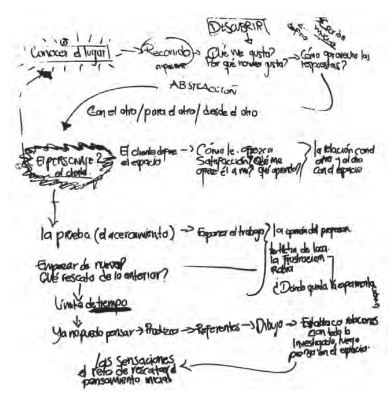 DESCUBRIR
Conocer el lugar → Recorrido → ¿Qué me gusta? → ¿Cómo aprovecho las
¿Por qué no me gusta? respuestas?
ABSTRACCIÓN
Con el otro / para el otro / desde el otro
El PERSONAJE?
el cliente
El cliente define → Cómo le ofrezco
el espacio Satisfacción? Qué me
ofrece él a mi? qué aprendo?
la relación con el
otro y el otro
con el espacio
la prueba (el acercamiento) → Exponer el trabajo
la opinión del profesor
la frustración
Rabia
Empezar de nuevo?
Qué rescato de lo anterior?
¿Dónde queda la experiencia
Límite de tiempo
Ya no puedo pensar → Produzco → Referentes → Dibujo → Establezco relaciones
con todo lo
investigado, luego
el espacio.
las sensaciones
el reto de rescatar el
pensamiento inicial